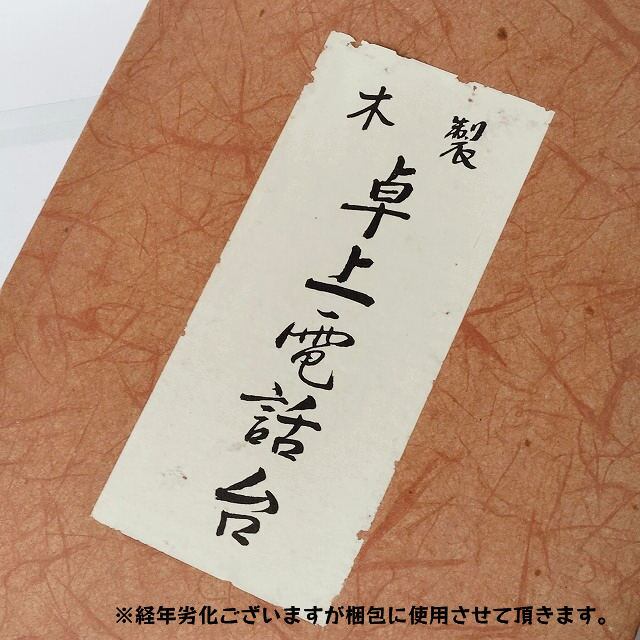 木製
卓上電話台
※経年劣化ございますが梱包に使用させて頂きます。